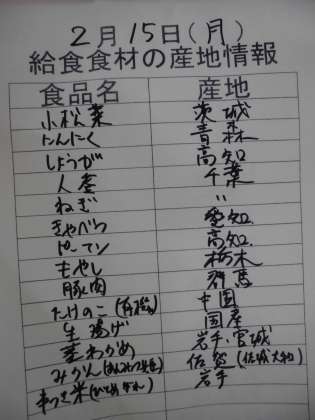 2月15日(月)
給食食材の産地情報
食品名 産地
小松菜 茨城
にんにく 青森
しょうが 高知
人参 千葉
ねぎ 〃
きゃべつ 愛知
ピーマン 高知
もやし 栃木
豚肉 群馬
たけのこ(有機) 中国
生揚げ 国産
茎わかめ 岩手・宮城
みかん 佐賀
岩手